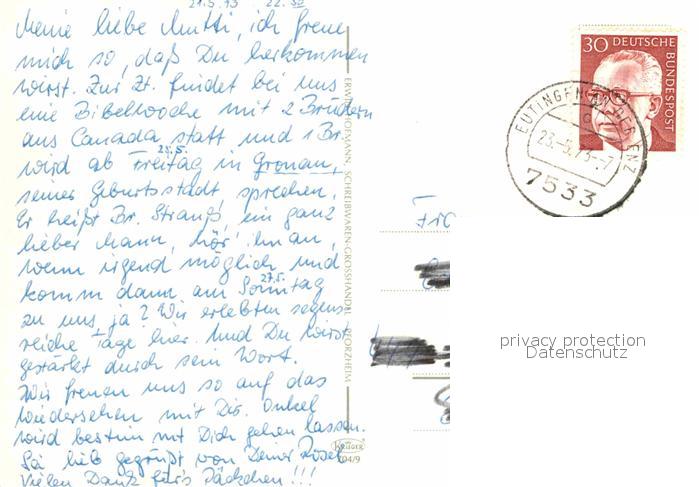 21.5.73 22.30
Meine liebe Mutti, ich freue
mich so, daß Du herkommen
wirst. Zur Zt. findet bei uns
eine Bibelwoche mit 2 Brüdern
aus Canada statt und 1 Br.
25.5.
wird ab Freitag in Gronau,
seiner Geburtsstadt, sprechen.
Er heißt Br. Strauß, ein ganz
lieber Mann, hör' ihn an,
wenn irgend möglich und
27.5.
komm dann am Sonntag
zu uns, ja? Wir erlebten segens
reiche Tage hier. Und Du wirst
gestärkt durch sein Wort.
Wir freuen uns so auf das
Wiedersehen mit Dir. Onkel
wird bestimmt Dich gehen lassen.
Sei lieb gegrüßt von Deiner Rösel
Vielen Dank für's Päckchen!!!
ERWIN HOFMANN, SCHREIBWAREN-GROSSHANDEL, PFORZHEIM
KRÜGER
704/9
30 DEUTSCHE
BUNDESPOST
EUTINGEN AN DER ENZ
a
23.-5.73.-7
7533
Fr
privacy protection
Datenschutz